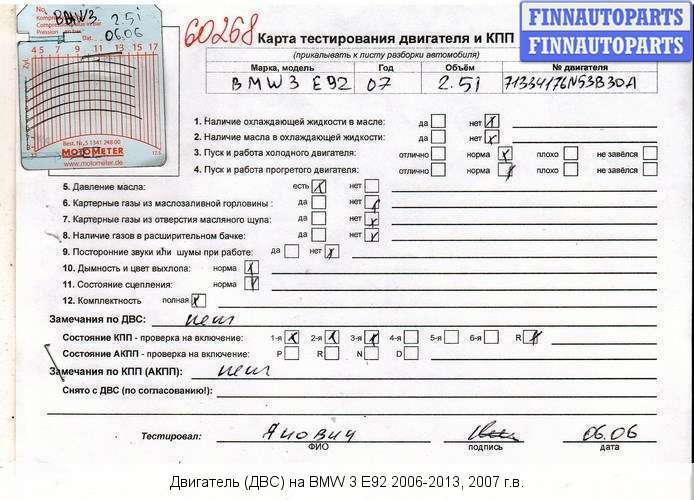 BMW3 2.5i
06.06
Dat.
4 5 7 9 11 13 15 17
Best. Nr. 5 1341 248 00
MOTOMETER
www.motometer.de
60268
FINNAUTOPARTS
FINNAUTOPARTS
Карта тестирования двигателя и КПП
(прикалывать к листу разборки автомобиля)
Марка, модель Год Объём № двигателя
BMW3 E92 07 2.5i 71334176N53B30A
1. Наличие охлаждающей жидкости в масле: да нет x
2. Наличие масла в охлаждающей жидкости: да нет x
3. Пуск и работа холодного двигателя: отлично норма x плохо не завёлся
4. Пуск и работа прогретого двигателя: отлично норма x плохо не завёлся
5. Давление масла: есть x нет
6. Картерные газы из маслозаливной горловины : да нет x
7. Картерные газы из отверстия масляного щупа: да нет x
8. Наличие газов в расширительном бачке: да нет x
9. Посторонние звуки или шумы при работе: да нет x
10. Дымность и цвет выхлопа: норма x
11. Состояние сцепления: норма x
12. Комплектность полная x
Замечания по ДВС: нет
Состояние КПП - проверка на включение: 1-я x 2-я x 3-я x 4-я 5-я 6-я R x
Состояние АКПП - проверка на включение: P R N D
Замечания по КПП (АКПП): нет
Снято с ДВС (по согласованию!):
Тестировал: Янович 06.06
ФИО подпись дата
Двигатель (ДВС) на BMW 3 E92 2006-2013, 2007 г.в.